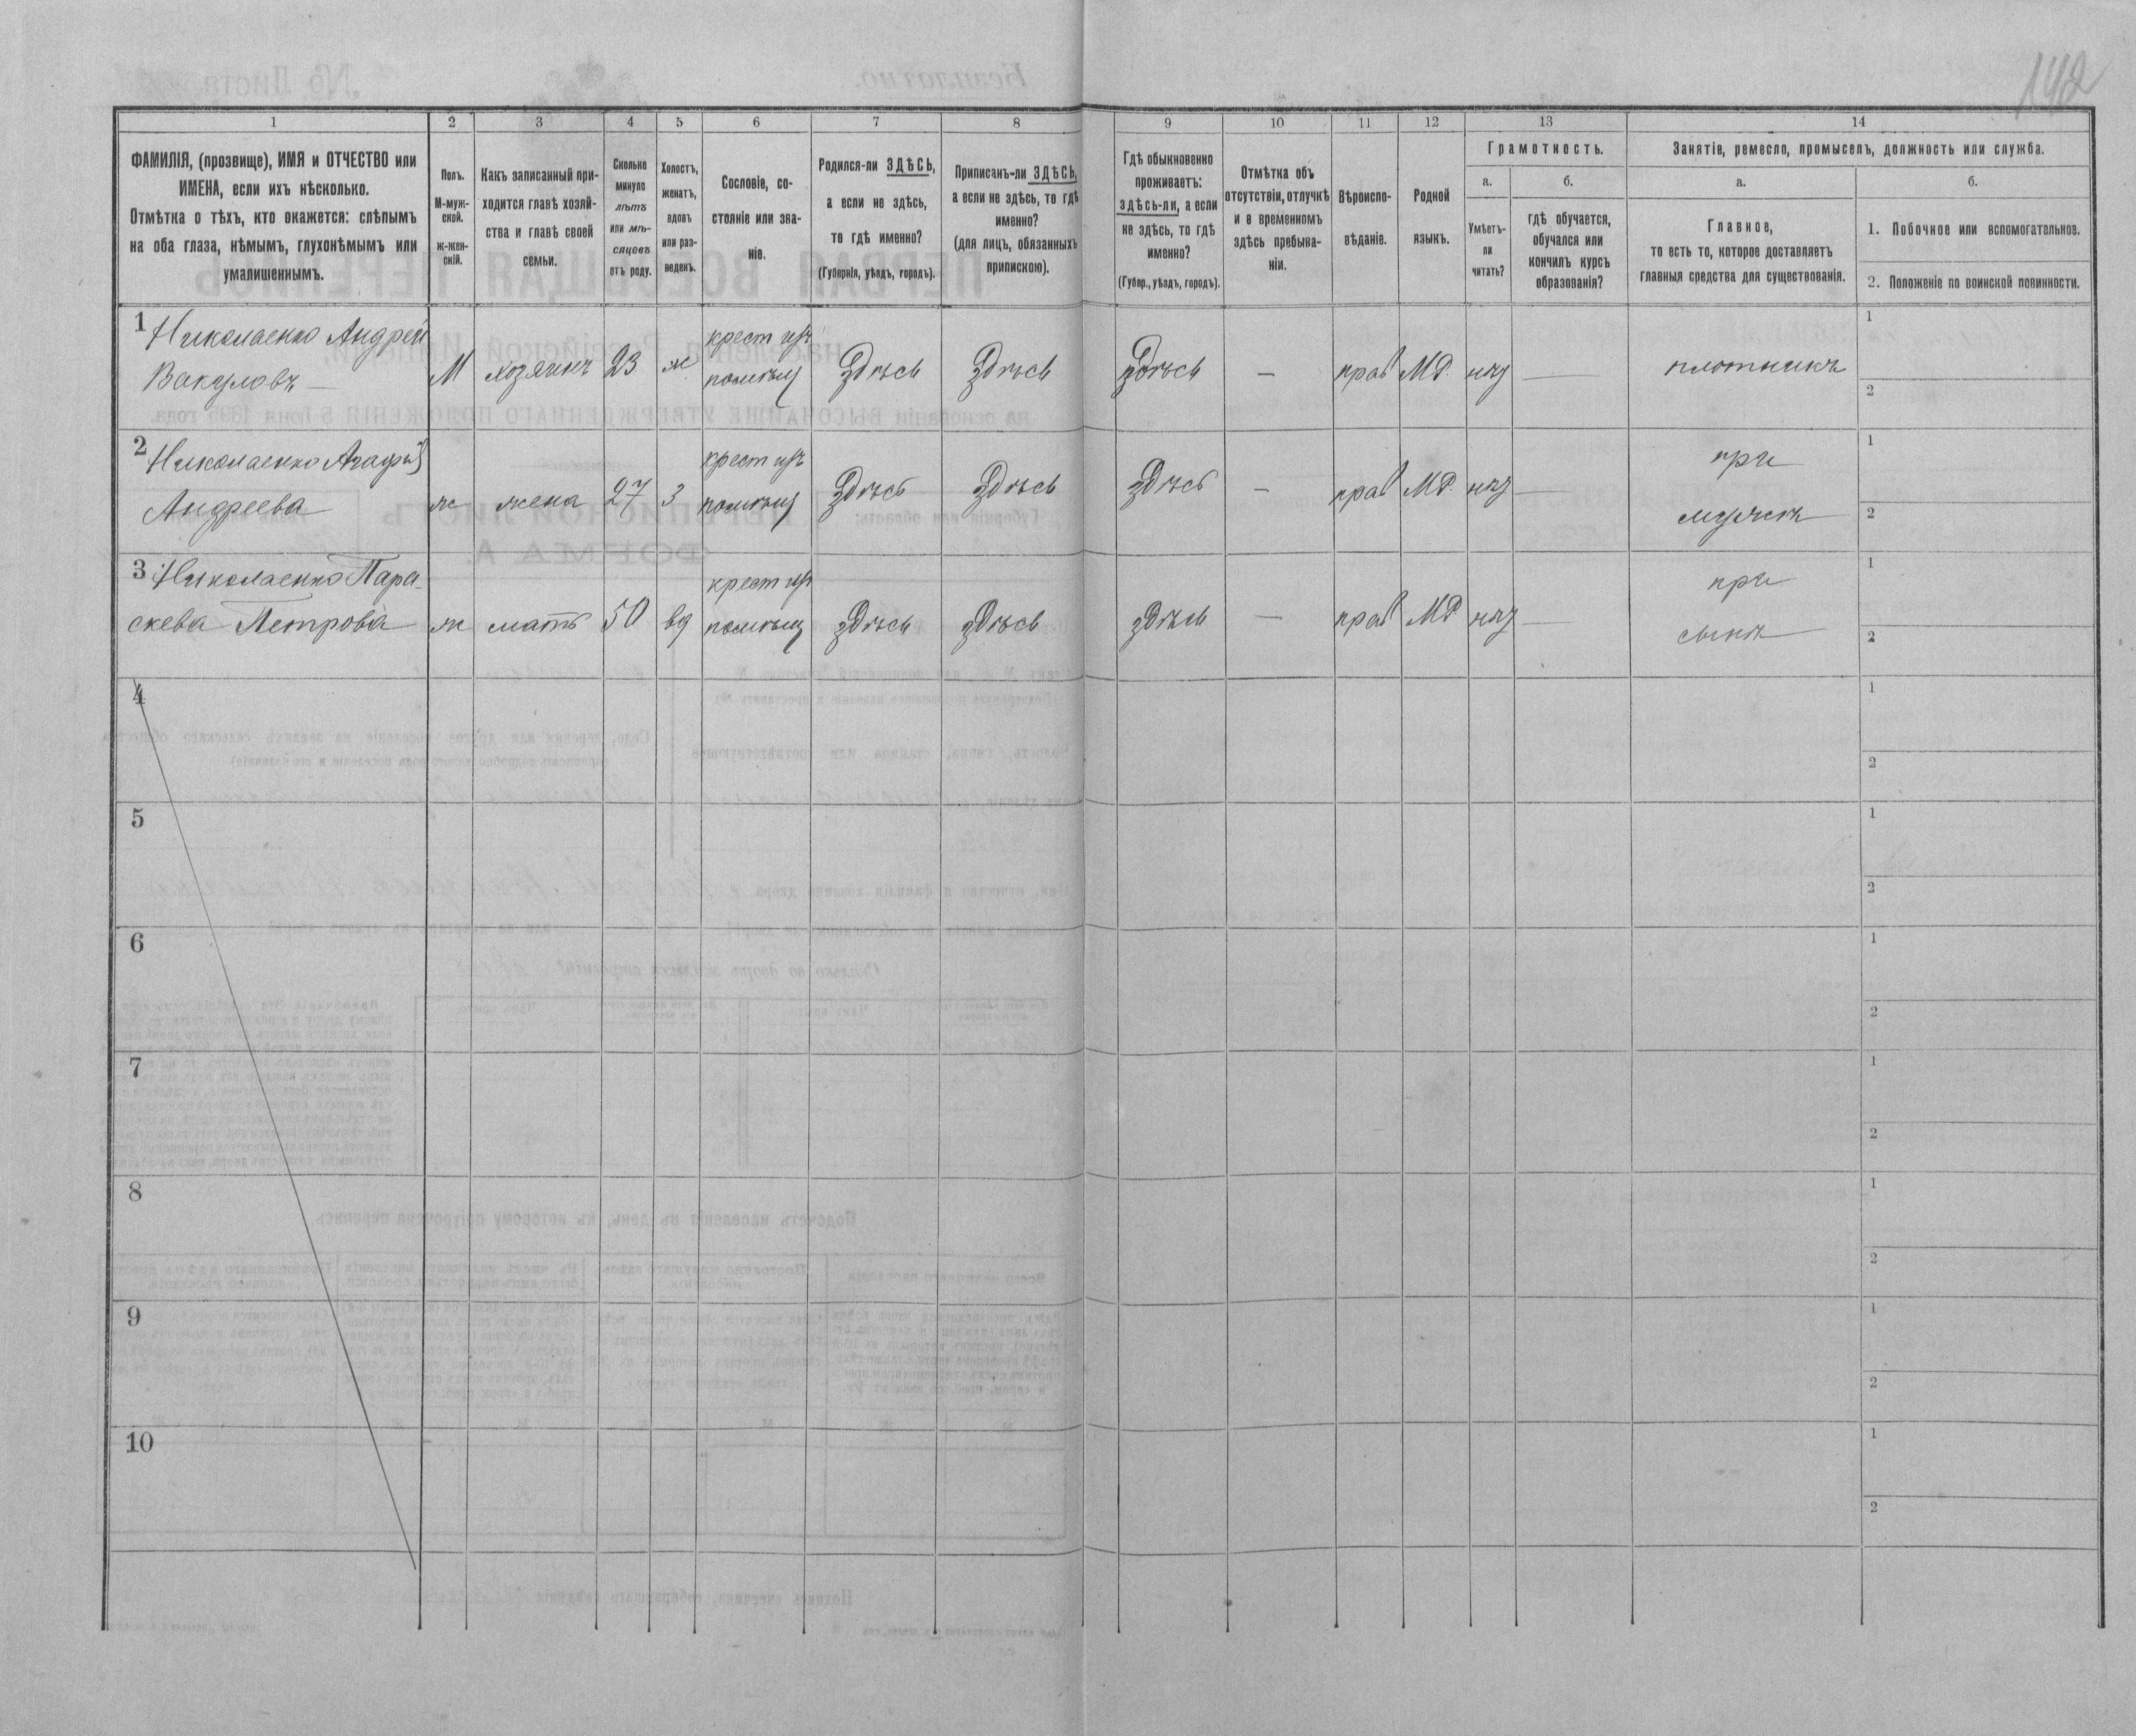 142
1
2
3
4
5
6
7
8
9
10
11
12
13
14
ФАМИЛІЯ, (прозвище), ИМЯ и ОТЧЕСТВО или
ИМЕНА, если ихъ нѣсколько.
Отмѣтка о тѣхъ, кто окажется: слѣпымъ
на оба глаза, нѣмымъ, глухонѣмымъ или
умалишеннымъ.
Полъ.
М-муж-
ской.
ж-жен-
скій.
Какъ записанный при-
ходится главѣ хозяй-
ства и главѣ своей
семьи.
Сколько
минуло
лѣтъ
или мѣ-
сяцевъ
отъ роду.
Холостъ,
женатъ,
вдовъ
или раз-
веденъ.
Сословіе, со-
стояніе или зва-
ніе.
Родился-ли ЗДѢСЬ,
а если не здѣсь,
то гдѣ именно?
(Губернія, уѣздъ, городъ).
Приписанъ-ли ЗДѢСЬ,
а если не здѣсь, то гдѣ
именно?
(для лицъ, обязанныхъ
припискою).
Гдѣ обыкновенно
проживаетъ:
здѣсь-ли, а если
не здѣсь, то гдѣ
именно?
(Губер., уѣздъ, городъ).
Отмѣтка объ
отсутствіи, отлучкѣ
и о временномъ
здѣсь пребыва-
ніи.
Вѣроиспо-
вѣданіе.
Родной
языкъ.
Грамотность.
а.
Умѣетъ-
ли
читать?
б.
гдѣ обучается,
обучался или
кончилъ курсъ
образованія?
Занятіе, ремесло, промыселъ, должность или служба.
а.
Главное,
то есть то, которое доставляетъ
главныя средства для существованія.
б.
1. Побочное или вспомогательное.
2. Положеніе по воинской повинности.
1 Николаенко Андрей
Вакуловъ —
М
хозяинъ
23
ж
крест изъ
помѣщ
Здѣсь
Здѣсь
Здѣсь
—
прав
МР.
нѣт
—
плотникъ
1
2
2 Николаенко
Андреева
ж
жена
27
з
крест изъ
помѣщ
Здѣсь
Здѣсь
Здѣсь
—
прав
МР.
нѣт
—
при
мужѣ
1
2
3 Николаенко Пара-
скева Петрова
ж
мать
50
вд
крест из
помѣщ
здѣсь
здѣсь
здѣсь
—
прав
МР
нѣт
—
при
сынѣ
1
2
4
1
2
5
1
2
6
1
2
7
1
2
8
1
2
9
1
2
10
1
2